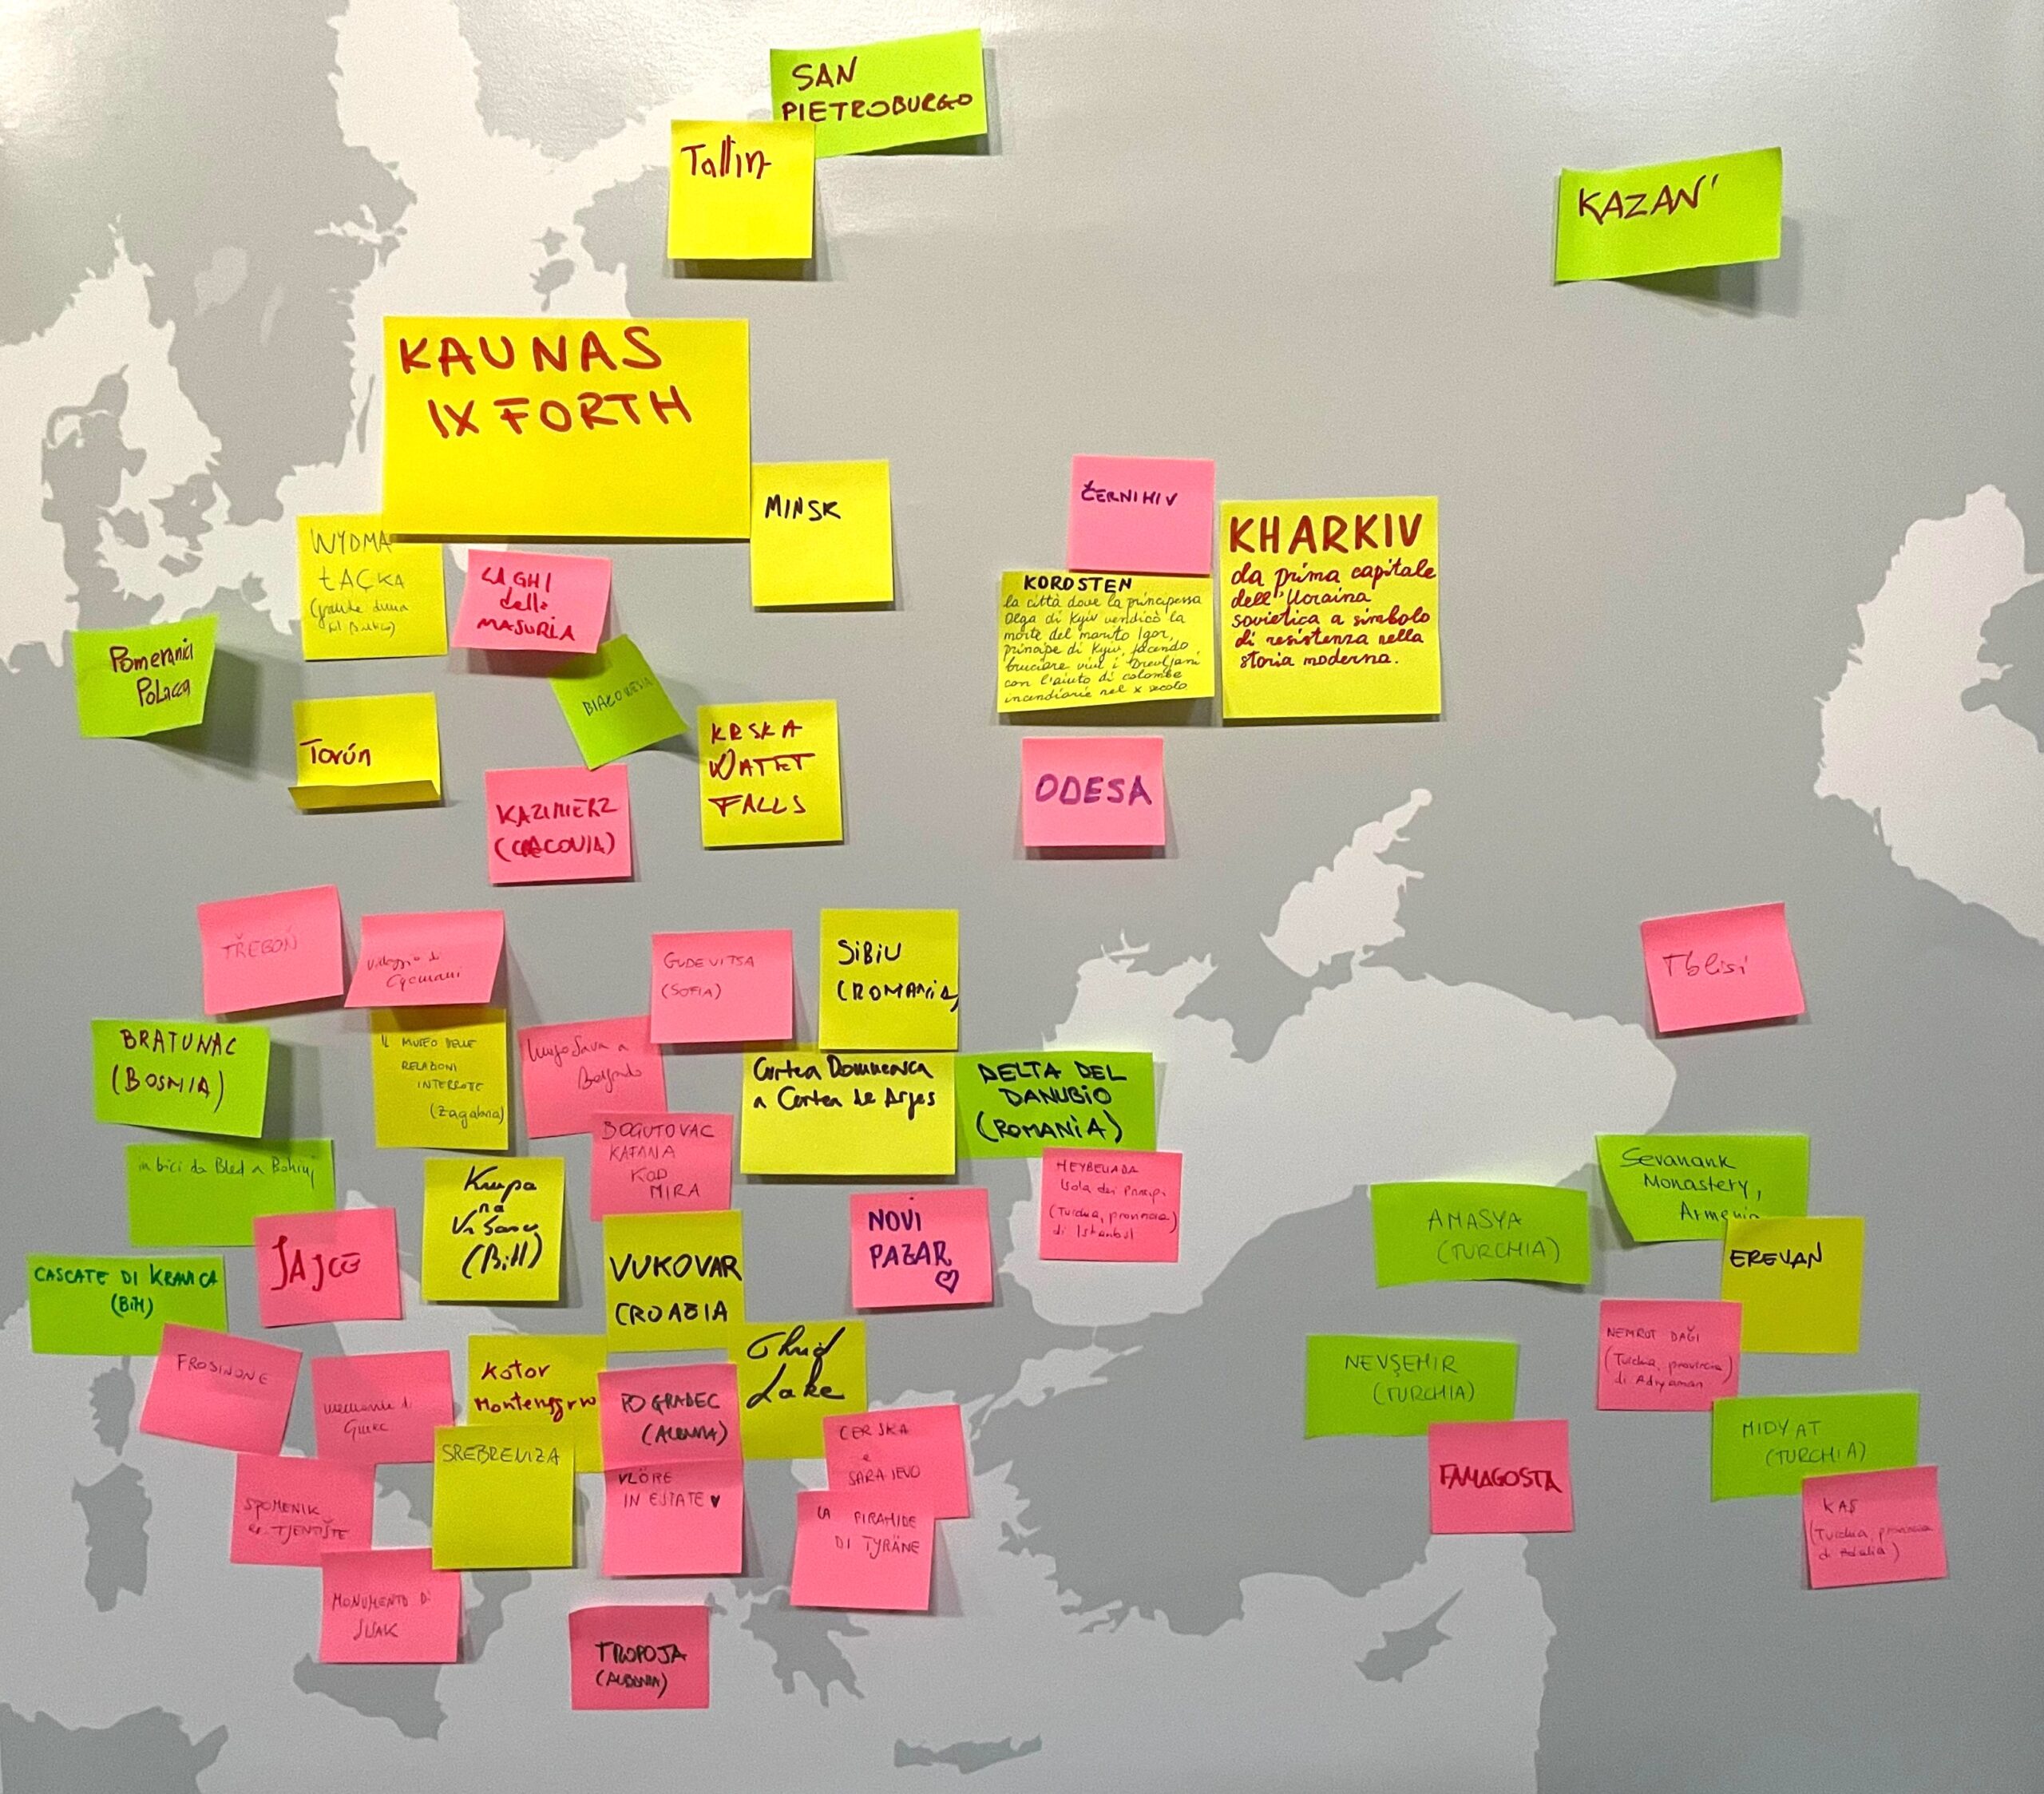 SAN
PIETROBURGO
Tallin
KAZAN'
KAUNAS
IX FORTH
MINSK
ČERNIHIV
KHARKIV
da prima capitale
dell'Ucraina
sovietica a simbolo
di resistenza nella
storia moderna.
KOROSTEN
la città dove la principessa
Olga di Kyiv vendicò la
morte del marito Igor,
principe di Kyiv, facendo
bruciare vivi i Drevljani
con l'aiuto di colombe
incendiarie nel X secolo
WYDMA
ŁĄCKA
Grande duna
sul Baltico)
LAGHI
della
MASURIA
Pomerania
Polacca
BIAŁOWIEŻA
Toruń
KRSKA
WATET
FALLS
ODESA
KAZIMIERZ
(CRACOVIA)
TŘEBOŇ
villaggio di
GUDEVITSA
(SOFIA)
SIBIU
(ROMANIA)
Tblisi
BRATUNAC
(BOSNIA)
IL MUSEO DELLE
RELAZIONI
INTERROTE
(Zagabria)
lungo Sava a
Belgrado
Curtea Domneasca
a Curtea de Arges
DELTA DEL
DANUBIO
(ROMANIA)
BOGUTOVAC
KAFANA
KOD
MIRA
in bici da Bled a Bohinj
Krupa
na
Vrbasu
(BiH)
HEYBELIADA
Isola dei Principi
(Turchia, provincia
di Istanbul)
Sevanank
Monastery,
Armenia
AMASYA
(TURCHIA)
EREVAN
JAJCE
VUKOVAR
CROAZIA
NOVI
PAZAR
CASCATE DI KRAVICA
(BiH)
FROSINONE
Kotor
Montenegro
POGRADEC
(ALBANIA)
Ohrid
Lake
NEMRUT DAĞI
(Turchia, provincia
di Adıyaman
NEVŞEHIR
(TURCHIA)
MIDYAT
(TURCHIA)
FAMAGOSTA
KAŞ
(Turchia, provincia
di Adalia)
SREBRENIZA
VLÖRE
IN ESTATE ♥
CERSKA
e
SARAJEVO
SPOMENIK
TJENTIŠTE
LA PIRAMIDE
DI TYRÄNE
MONUMENTO DI
SISAK
TROPOJA
(ALBANIA)